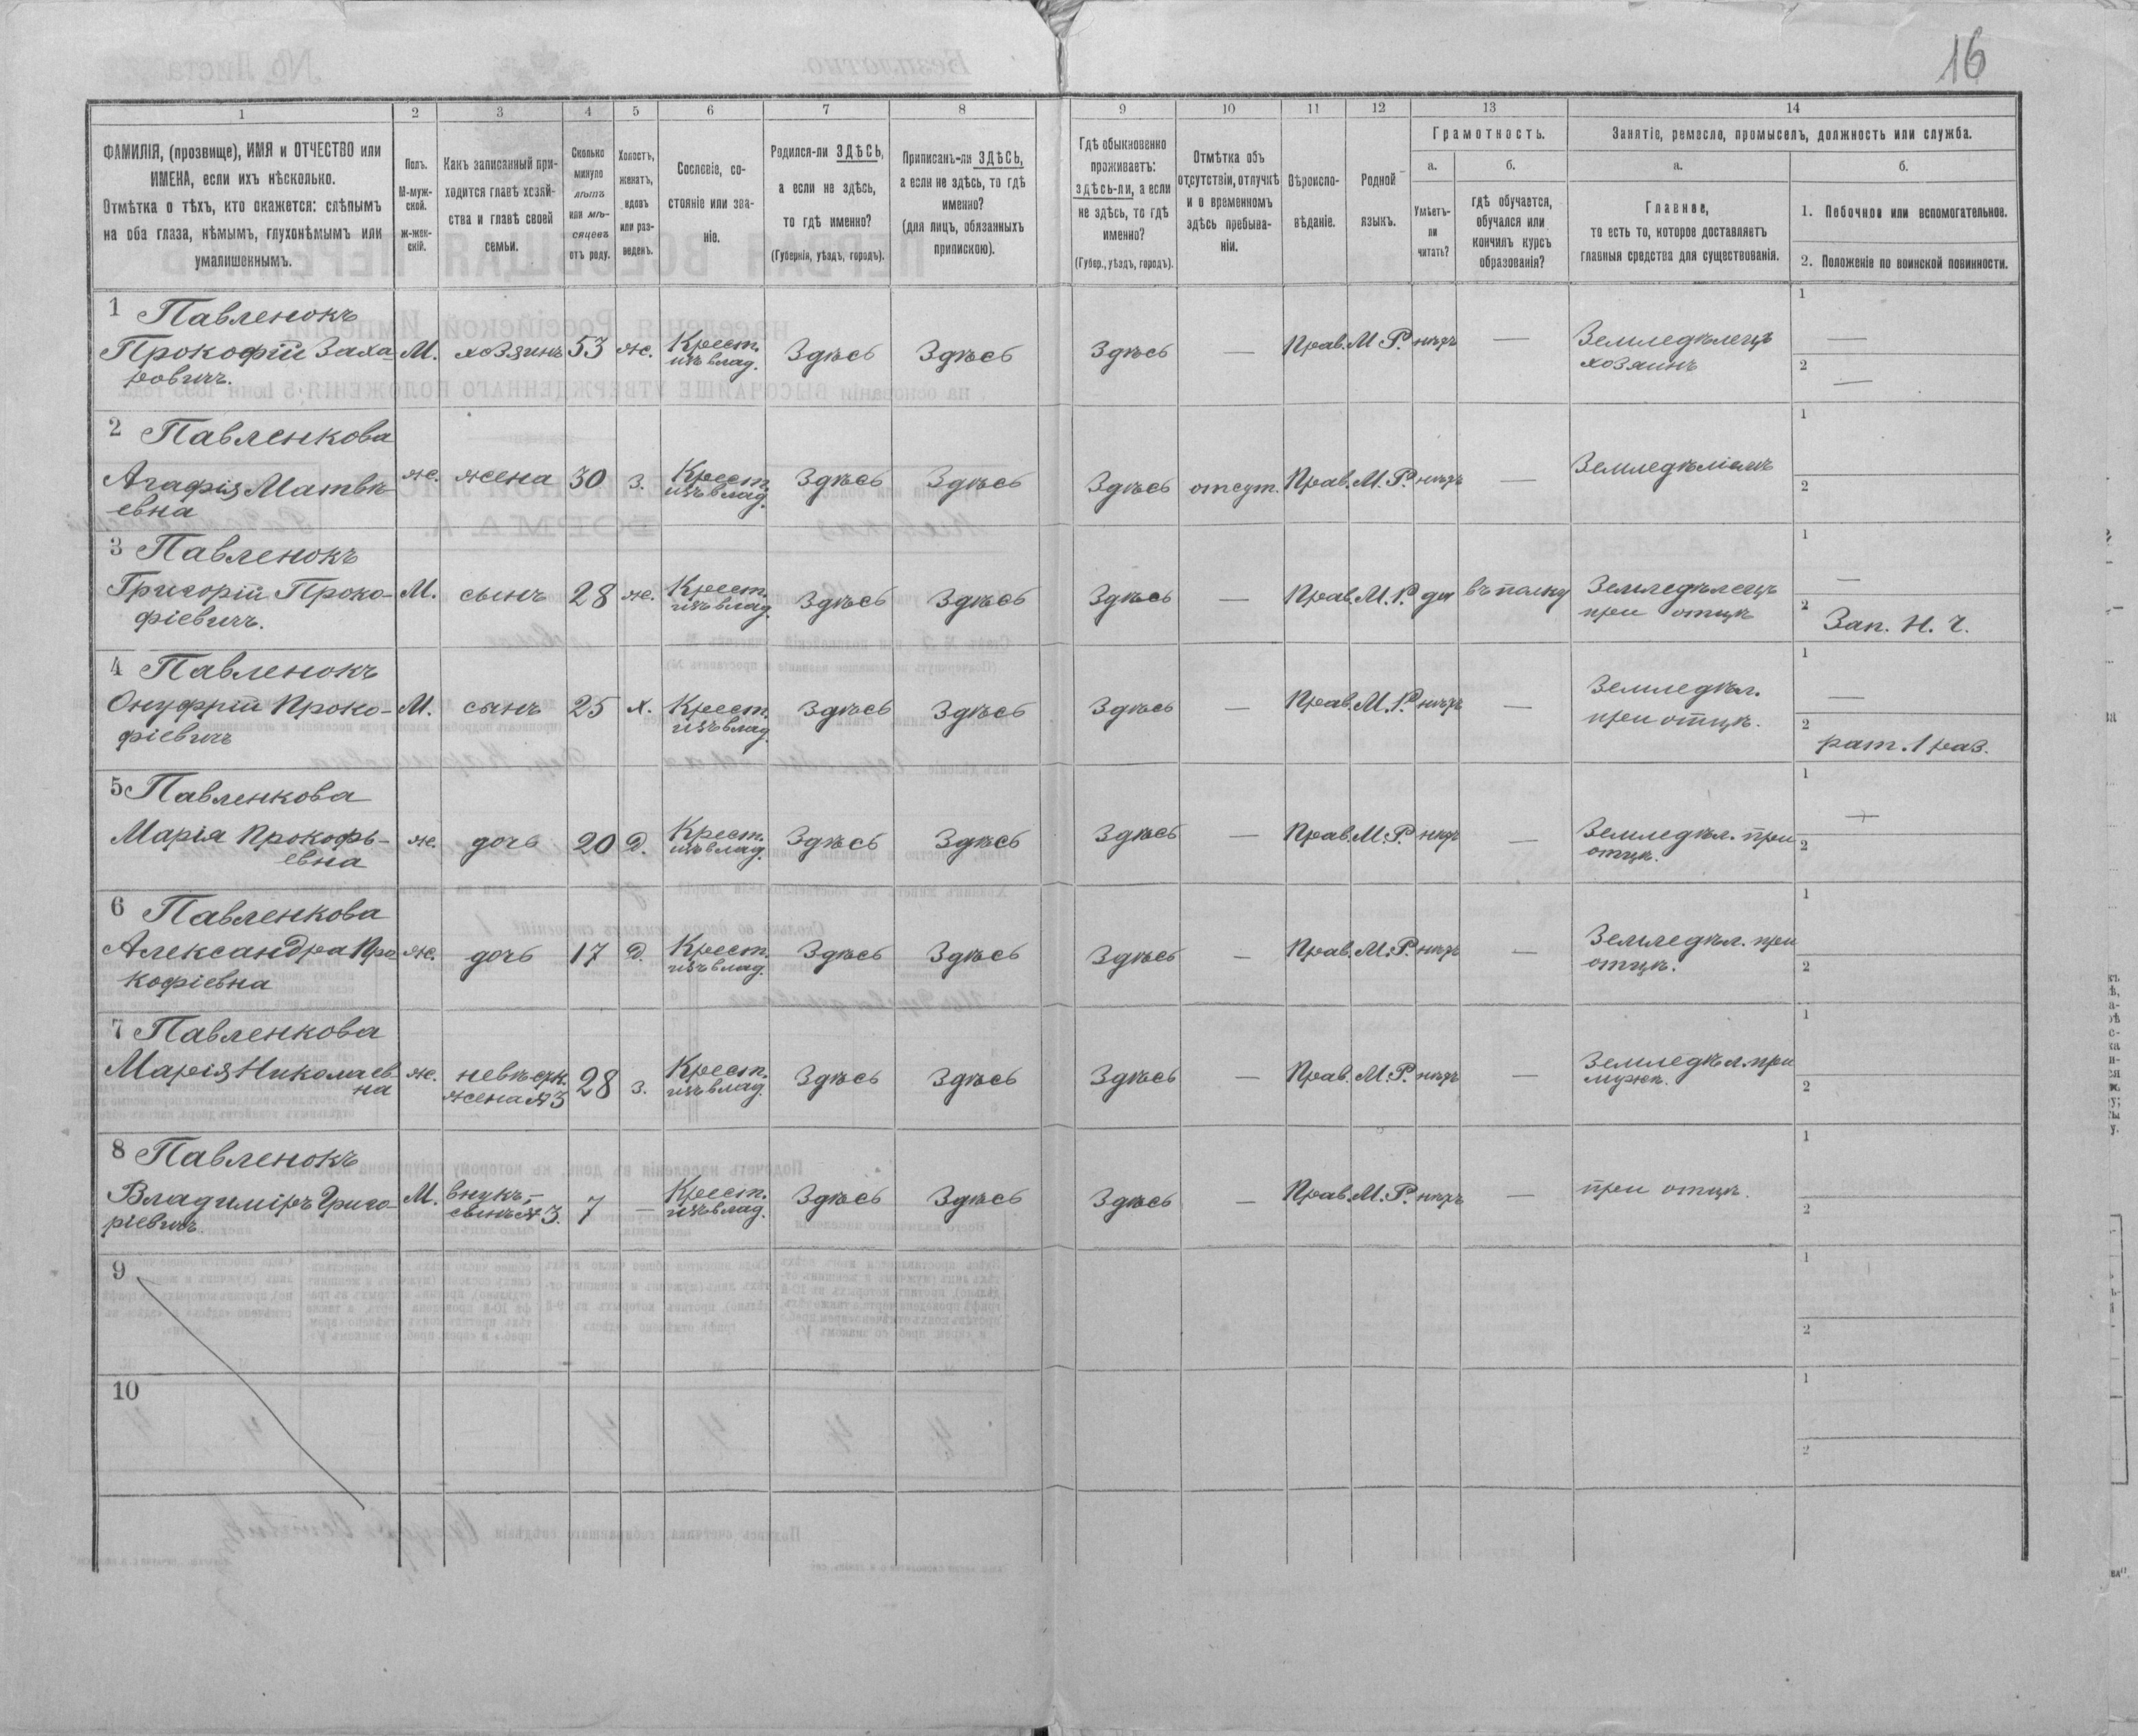 16
1 2 3 4 5 6 7 8 9 10 11 12 13 14
ФАМИЛІЯ, (прозвище), ИМЯ и ОТЧЕСТВО или
ИМЕНА, если ихъ нѣсколько.
Отмѣтка о тѣхъ, кто окажется: слѣпымъ
на оба глаза, нѣмымъ, глухонѣмымъ или
умалишеннымъ.
Полъ.
М-муж-
ской.
ж-жен-
скій.
Какъ записанный при-
ходится главѣ хозяй-
ства и главѣ своей
семьи.
Сколько
минуло
лѣтъ
или мѣ-
сяцевъ
отъ роду.
Холостъ,
женатъ,
вдовъ
или раз-
веденъ.
Сословіе, со-
стояніе или зва-
ніе.
Родился-ли ЗДѢСЬ,
а если не здѣсь,
то гдѣ именно?
(Губернія, уѣздъ, городъ).
Приписанъ-ли ЗДѢСЬ,
а если не здѣсь, то гдѣ
именно?
(для лицъ, обязанныхъ
припискою).
Гдѣ обыкновенно
проживаетъ:
здѣсь-ли, а если
не здѣсь, то гдѣ
именно?
(Губер., уѣздъ, городъ).
Отмѣтка объ
отсутствіи, отлучкѣ
и о временномъ
здѣсь пребыва-
ніи.
Вѣроиспо-
вѣданіе.
Родной
языкъ.
Грамотность.
а.
Умѣетъ-
ли
читать?
б.
гдѣ обучается,
обучался или
кончилъ курсъ
образованія?
Занятіе, ремесло, промыселъ, должность или служба.
а.
Главное,
то есть то, которое доставляетъ
главныя средства для существованія.
б.
1. Побочное или вспомогательное.
2. Положеніе по воинской повинности.
1 Павленокъ
Прокофій Заха-
ровичъ.
М. хозяинъ 53 ж. Крест.
изъ влад.
Здѣсь Здѣсь Здѣсь — Прав. М. Р. нѣтъ — Земледѣлецъ
хозяинъ
1 —
2 —
2 Павленкова
Агафія Матвѣ-
евна
ж. жена 30 з. Крест.
изъ влад.
Здѣсь Здѣсь Здѣсь отсут. Прав. М. Р. нѣтъ —
1
2
3 Павленокъ
Григорій Проко-
фіевичъ.
М. сынъ 28 ж. Крест.
изъ влад.
Здѣсь Здѣсь Здѣсь — Прав. М. Р. да въ полку Земледѣлецъ
при отцѣ
1 —
2 Зап. Н. Ч.
4 Павленокъ
Онуфрій Проко-
фіевичъ
М. сынъ 25 х. Крест.
изъ влад.
Здѣсь Здѣсь Здѣсь — Прав. М. Р. нѣтъ — Земледѣл.
при отцѣ.
1 —
2 рат. 1 раз.
5 Павленкова
Марія Прокофь-
евна
ж. дочь 20 д. Крест.
изъ влад.
Здѣсь Здѣсь Здѣсь — Прав. М. Р. нѣтъ — Земледѣл. при
отцѣ.
1 —
2
6 Павленкова
Александра Про
кофіевна
ж. дочь 17 д. Крест.
изъ влад.
Здѣсь Здѣсь Здѣсь — Прав. М. Р. нѣтъ — Земледѣл. при
отцѣ.
1
2
7 Павленкова
Марія Николаев
на
ж. невѣстк.
жена № 3
28 з. Крест.
изъ влад.
Здѣсь Здѣсь Здѣсь — Прав. М. Р. нѣтъ — Земледѣл. при
мужѣ.
1
2
8 Павленокъ
Владиміръ Григо-
ріевичъ
М. внукъ,—
сынъ № 3.
7 — Крест.
изъ влад.
Здѣсь Здѣсь Здѣсь — Прав. М. Р. нѣтъ — при отцѣ.
1
2
9
1
2
10
1
2